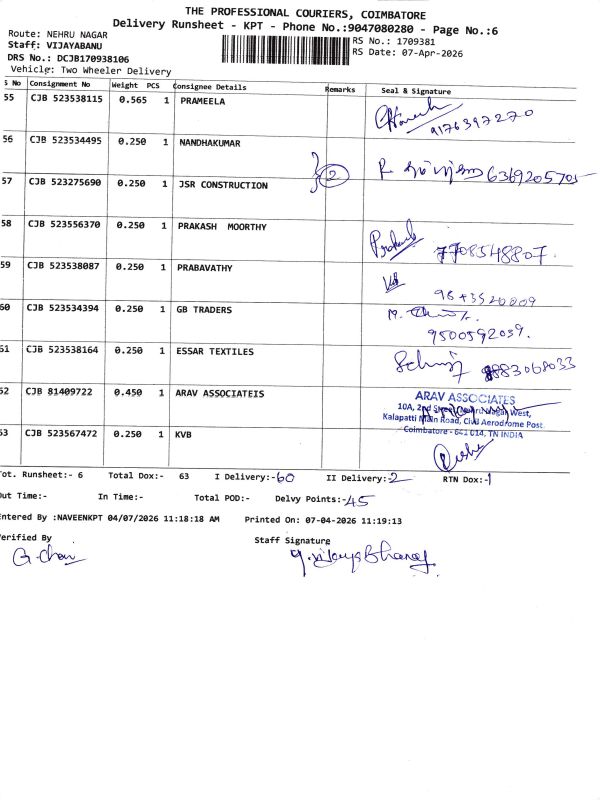 THE PROFESSIONAL COURIERS, COIMBATORE
Delivery Runsheet - KPT - Phone No.:9047080280 - Page No.:6
Route: NEHRU NAGAR
RS No.: 1709381
Staff: VIJAYABANU
RS Date: 07-Apr-2026
DRS No.: DCJB170938106
Vehicle: Two Wheeler Delivery
S No Consignment No Weight PCS Consignee Details Remarks Seal & Signature
55 CJB 523538115 0.565 1 PRAMEELA
9176397270
56 CJB 523534495 0.250 1 NANDHAKUMAR
2
57 CJB 523275690 0.250 1 JSR CONSTRUCTION
58 CJB 523556370 0.250 1 PRAKASH MOORTHY Prakash 7708548807.
59 CJB 523538087 0.250 1 PRABAVATHY
60 CJB 523534394 0.250 1 GB TRADERS
9500592039.
61 CJB 523538164 0.250 1 ESSAR TEXTILES
62 CJB 81409722 0.450 1 ARAV ASSOCIATEIS
ARAV ASSOCIATES
10A, 2nd Street, Nehru Nagar West,
Kalapatti Main Road, Civil Aerodrome Post
Coimbatore - 641 014, TN INDIA
63 CJB 523567472 0.250 1 KVB
Tot. Runsheet:- 6 Total Dox:- 63 I Delivery:-60 II Delivery:-2 RTN Dox:-1
Out Time:- In Time:- Total POD:- Delvy Points:-45
Entered By :NAVEENKPT 04/07/2026 11:18:18 AM Printed On: 07-04-2026 11:19:13
Verified By Staff Signature